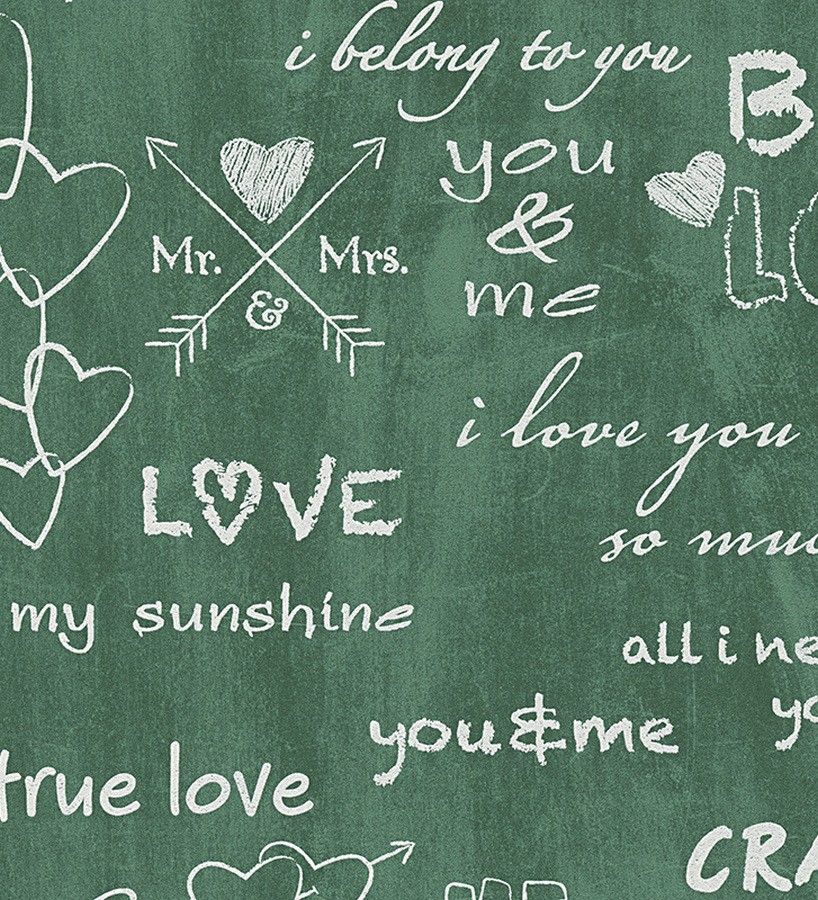 i belong to you
B
you
&
me
LO
Mr. Mrs.
&
i love you
so muc
LOVE
my sunshine
all i ne
yo
you&me
true love
CRA